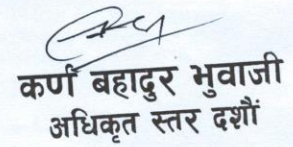 कर्ण बहादुर भुवाजी
अधिकृत स्तर दशौं